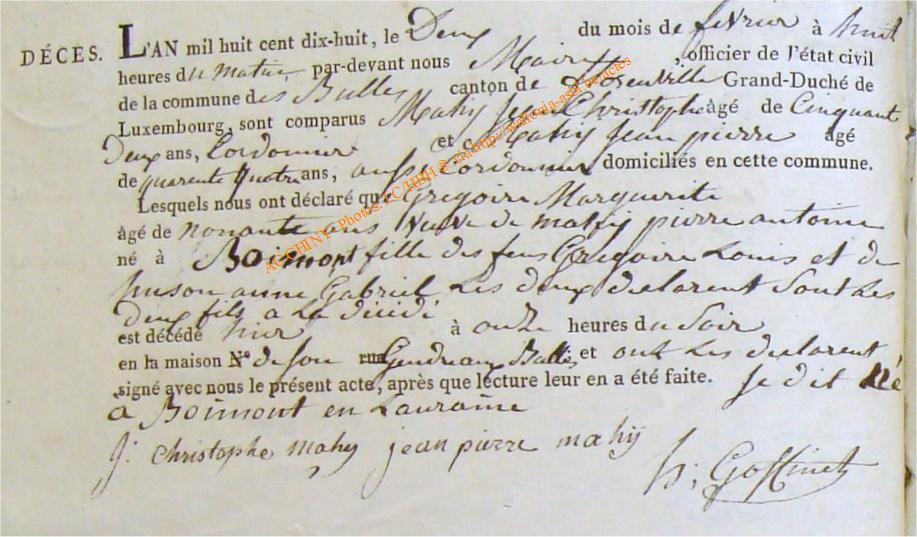 DÉCES. L'AN mil huit cent dix-huit, le Deux du mois de fevrier à huit
heures du matin par-devant nous Maire, officier de l'état civil
de la commune des Bulles canton de florenville Grand-Duché de
Luxembourg, sont comparus Mahy Jean Christophe âgé de Cinquant
Deux ans, Cordonnier et Mahy Jean pierre âgé
de quarente quatre ans, aussy Cordonnier domiciliés en cette commune.
Lesquels nous ont déclaré que Gregoire Marguerite
âgé de nonante ans veuve de mahy pierre antoine
né à Boimont fille des feus Gregoire Louis et de
husson anne Gabriel, Les deux declarent sont Les
deux fils a La décédé
est décédé hier à onze heures du Soir
en la maison No de son rue Bulles et ont Les declarent
signé avec nous le présent acte, après que lecture leur en a été faite. Je dit né
a Boimont en Lauraine
J. christophe mahy jean pierre mahy
h; Goffinet